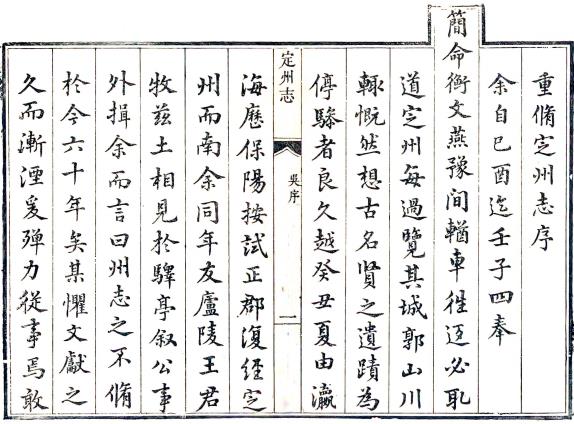 重脩定州志序
余自己酉迄壬子四奉
簡命衡文燕豫间輶車徃返必取
道定州每過覽其城郭山川
輒慨然想古名賢之遺蹟為
停驂者良久越癸丑夏由瀛
定州志
吳序
一
海歷保陽按試正郡復經定
州而南余同年友廬陵王君
牧兹土相見於驛亭叙公事
外揖余而言曰州志之不脩
於今六十年矣某懼文獻之
久而漸湮爰殫力從事焉敢